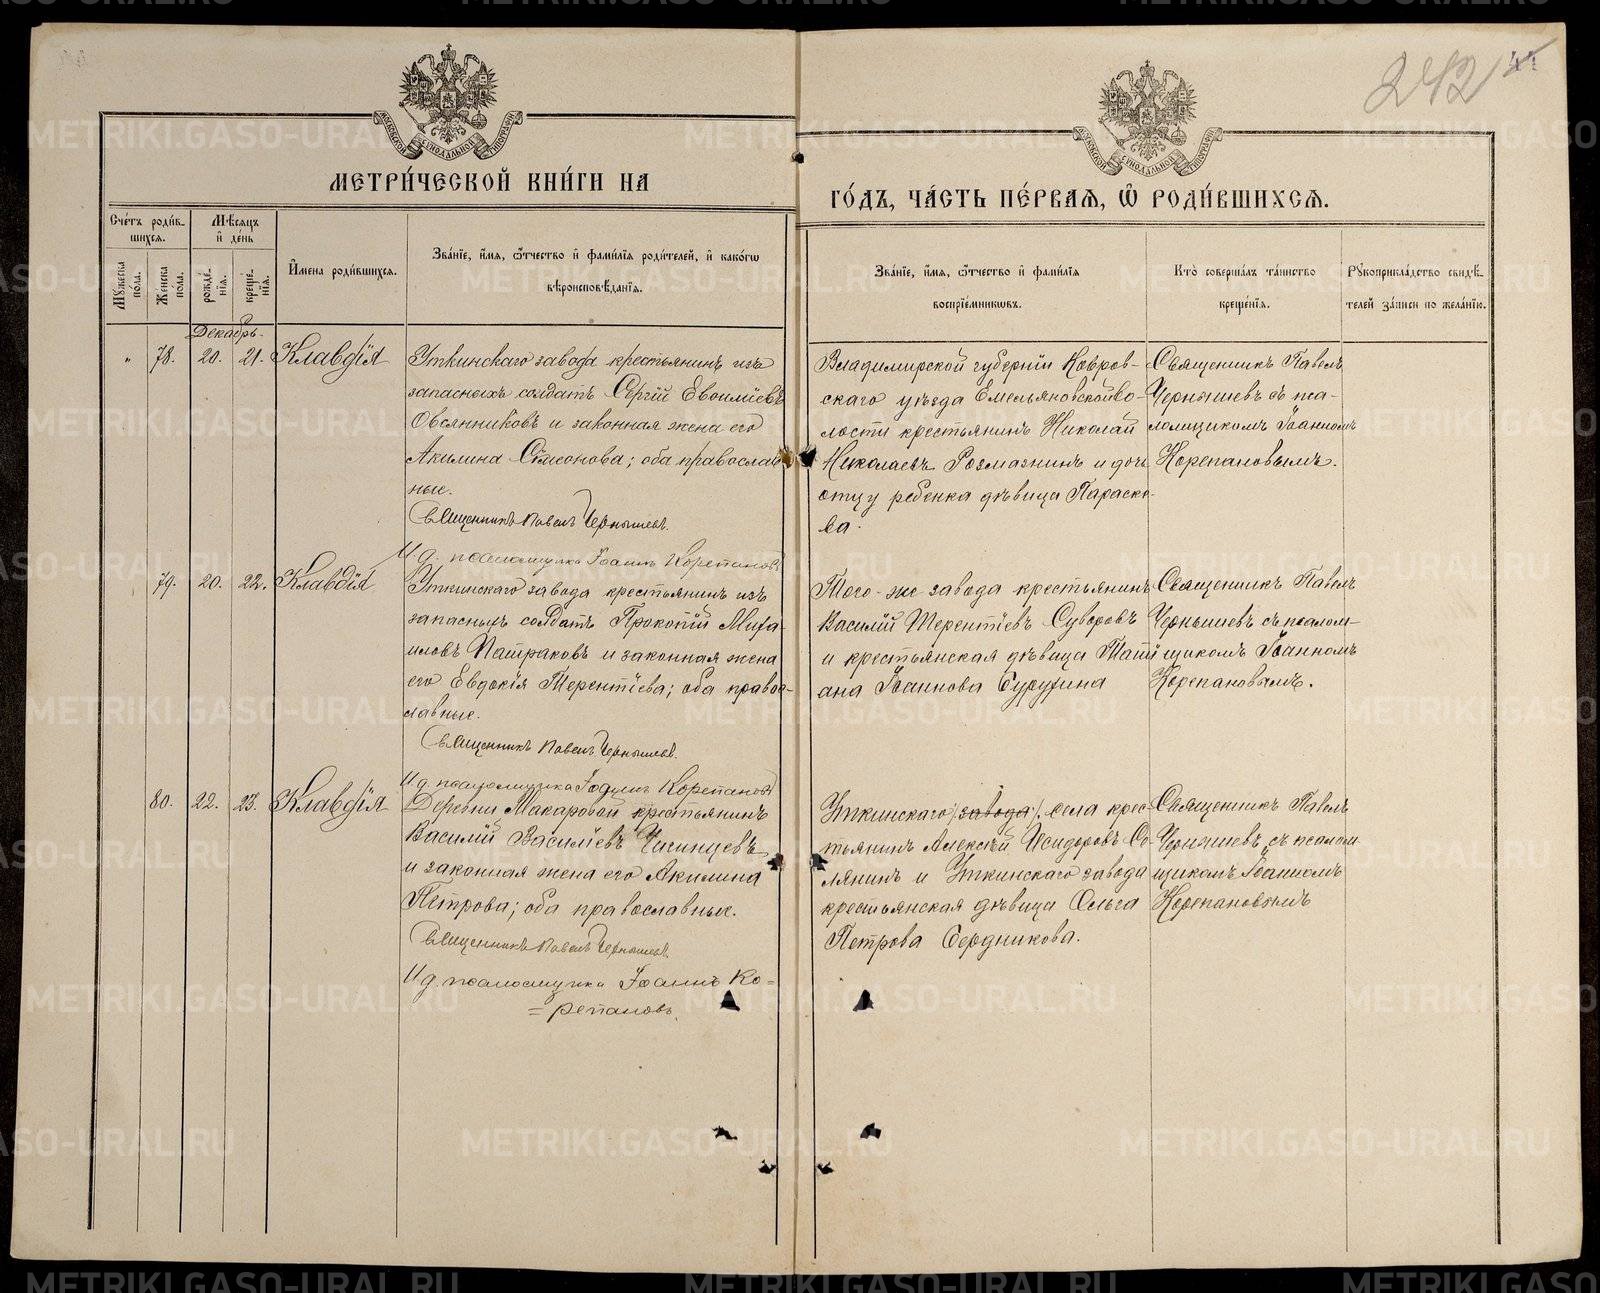 242
44
МОСКОВСКОЙ СѴНОДАЛЬНОЙ ТИПОГРАФІИ
МОСКОВСКОЙ СѴНОДАЛЬНОЙ ТИПОГРАФІИ
МЕТРИ́ЧЕСКОЙ КНИ́ГИ НА
ГО́ДЪ, ЧА́СТЬ ПЕ́РВАѦ, Ѿ РОДИ́ВШИХСѦ.
Сче́тъ роди́в-
шихсѧ.
Мѣ́сѧцъ
и҆ де́нь
Мꙋ́жеска
по́ла.
Же́нска
по́ла.
рожде́-
нїѧ.
креще́-
нїѧ.
И҆мена̀ роди́вшихсѧ.
Зва́нїе, и҆́мѧ, ѻ҆́тчество и҆ фами́лїѧ роди́телей, и҆ како́гѡ
вѣроисповѣ́данїѧ.
Зва́нїе, и҆́мѧ, ѻ҆́тчество и҆ фами́лїѧ
воспрїе́мникѡвъ.
Кто̀ соверша́лъ та́инство
креще́нїѧ.
Рꙋкоприкла́дство свидѣ́-
телей за́писи по жела́нїю.
Декабрь.
" 78. 20. 21. Клавдія
Уткинскаго завода крестьянинъ изъ
запасныхъ солдатъ Сергій Евѳиміевъ
Овсянниковъ и законная жена его
Акилина Сѵмеонова; оба православ
ные.
Священникъ Павелъ Чернышевъ.
И. д. псаломщика Іоаннъ Корепановъ
Владимирской губерніи Ковров-
скаго уѣзда Емельяновской во-
лости крестьянинъ Николай
Николаевъ Розмазнинъ и дочь
отцу ребенка дѣвица Параске-
ва.
Священникъ Павелъ
Чернышевъ съ пса-
ломщикомъ Іоанномъ
Корепановымъ.
79. 20. 22. Клавдія
Уткинскаго завода крестьянинъ изъ
запасныхъ солдатъ Прокопій Миха-
иловъ Патраковъ и законная жена
его Евдокія Терентіева; оба право-
славные.
Священникъ Павелъ Чернышевъ.
И. д. псаломщика Іоаннъ Корепановъ
Того-же завода крестьянинъ
Василій Терентіевъ Суворовъ
и крестьянская дѣвица Тати
ана Іоаннова
Священникъ Павелъ
Чернышевъ съ псалом-
щикомъ Іоанномъ
Корепановымъ.
80. 22. 23. Клавдія
Деревни Макаровой крестьянинъ
Василій Василіевъ
и законная жена его Акилина
Петрова; оба православные.
Священникъ Павелъ Чернышевъ.
И. д. псаломщика Іоаннъ Ко=
=репановъ.
Уткинскаго (завода) села крес-
тьянинъ Алексѣй Исидоровъ Со-
лянинъ и Уткинскаго завода
крестьянская дѣвица Ольга
Петрова Сердникова.
Священникъ Павелъ
Чернышевъ съ псалом
щикомъ Іоанномъ
Корепановымъ
METRIKI.GASO-URAL.RU